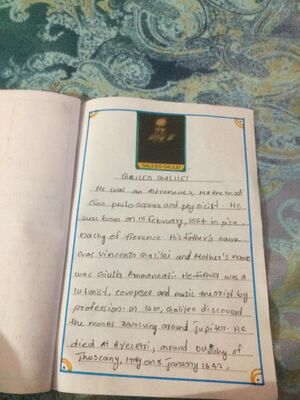 GALILEO GALILEI
GALILEO GALILEI
He was an Astronomer, Mathemati
cian philosopher and physicist. He
was born on 15 february, 1564 in pisa,
Duchy of florence. His father's name
was Vincenzo Galilei and Mother's name
was Giulia Ammannati. He father was a
lutanist, composer and music theorist by
profession. In 1610, Galileo discovered
the moons revolving around Jupiter. He
died At Arcetri, grand Duchy of
Thuscany, Italy on 8 January 1642.